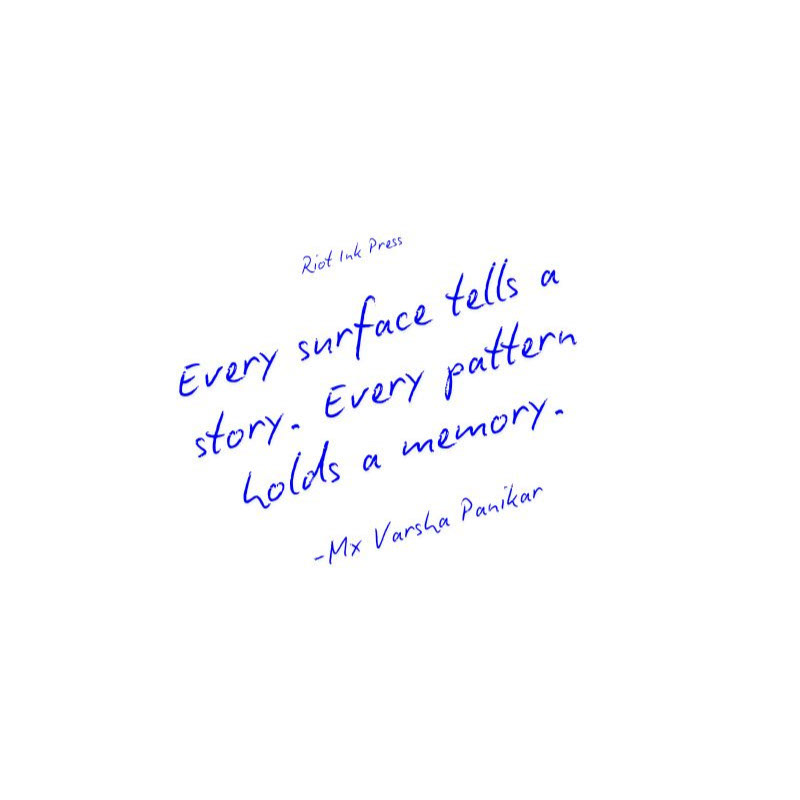 Riot Ink Press
Every surface tells a
story. Every pattern
holds a memory.
-Mx Varsha Panikar